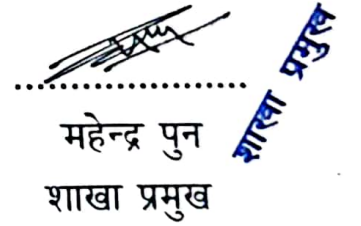 महेन्द्र पुन
शाखा प्रमुख
शाखा प्रमुख